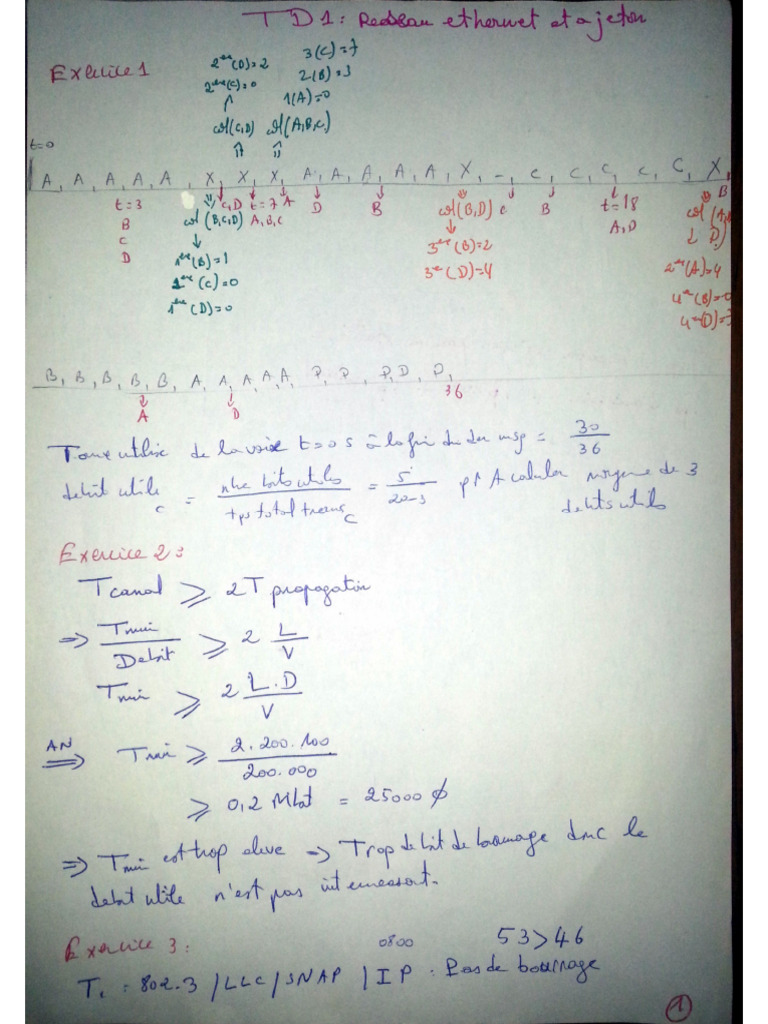 TD1: Reseau ethernet et a jeton
Exercice 1
2ème(D)=2
2ème(C)=0
col(C,D)
3(C)=7
2(B)=3
1(A)=0
col(A,B,C)
t=0
A, A, A, A, A, X, X, X, A, A, A, A, A, X, -, C, C, C, C, C, X,
t=3
B
C
D
col(B,C,D)
1ère(B)=1
1ère(C)=0
1ère(D)=0
C,D
t=7
A,B,C
A
D
B
col(B,D)
3ème(B)=2
3e(D)=4
C
B
t=18
A,D
B
2ème(A)=4
B, B, B, B, B, A, A, A, A, A, D, D, D, D, D,
A
D
36
Taux utilise de la voix t=0s à la fin du der msg = 30/36
debit utile C = nbre bits utiles / tps total trans C = 5/20-3 pr A calculer moyenne de 3
debits utils
Exercice 2:
Tcanal ⩾ 2T propagation
⇒ Tmin/Debit ⩾ 2 L/V
Tmin ⩾ 2 L.D/V
AN ⇒ Tmin ⩾ 2.200.100/200.000
⩾ 0,2 Mbit = 25000 ϕ
⇒ Tmin est trop elevé → Trop de bit de bourrage donc le
debit utile n'est pas interressant.
Exercice 3:
0800
53>46
T1 : 802.3 / LLC / SNAP / IP : Pas de bourrage
1